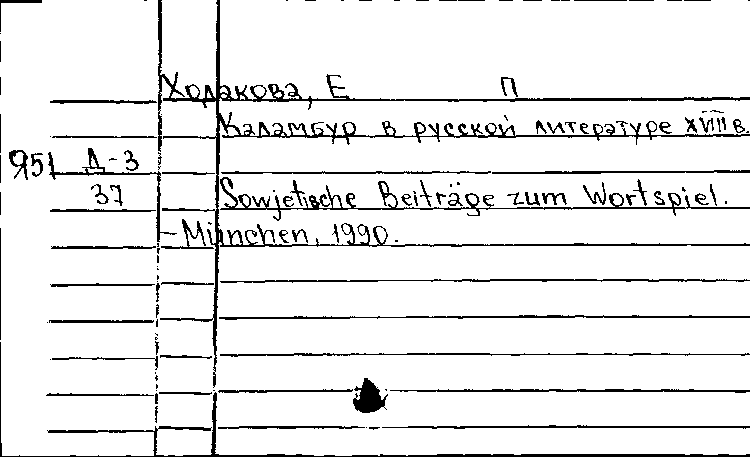 Ходакова, Е П
Каламбур в русской литературе XVIII в.
Я51 Д-3
37 Sowjetische Beiträge zum Wortspiel.
- München, 1990.